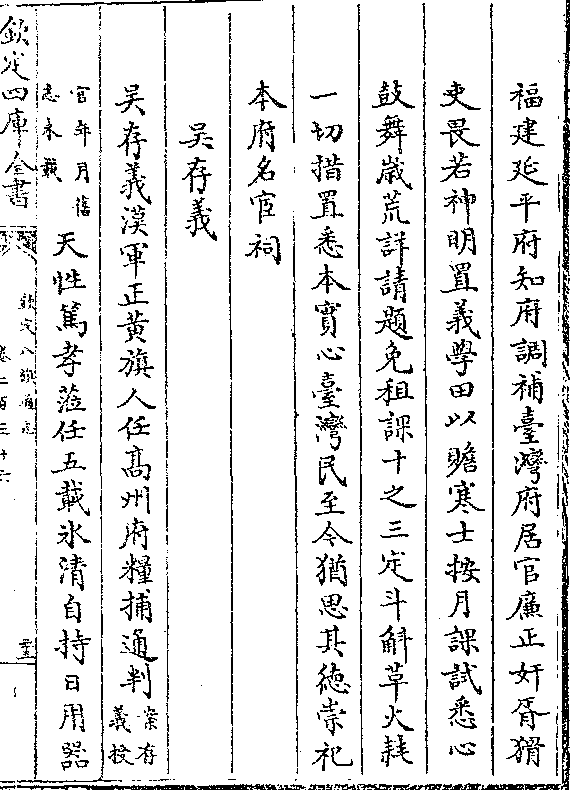 福建延平府知府調補臺灣府居官廉正奸胥猾
吏畏若神明置義學田以贍寒士按月課試悉心
鼓舞歲荒詳請題免租課十之三定斗斛革火耗
一切措置悉本實心臺灣民至今猶思其徳崇祀
本府名宦祠
吴存義
吴存義漢軍正黄旗人任髙州府糧捕通判案存義授
官年月舊志未載天性篤孝蒞任五載氷清自持日用器
欽定四庫全書
欽定八旗通志
卷二百三十六